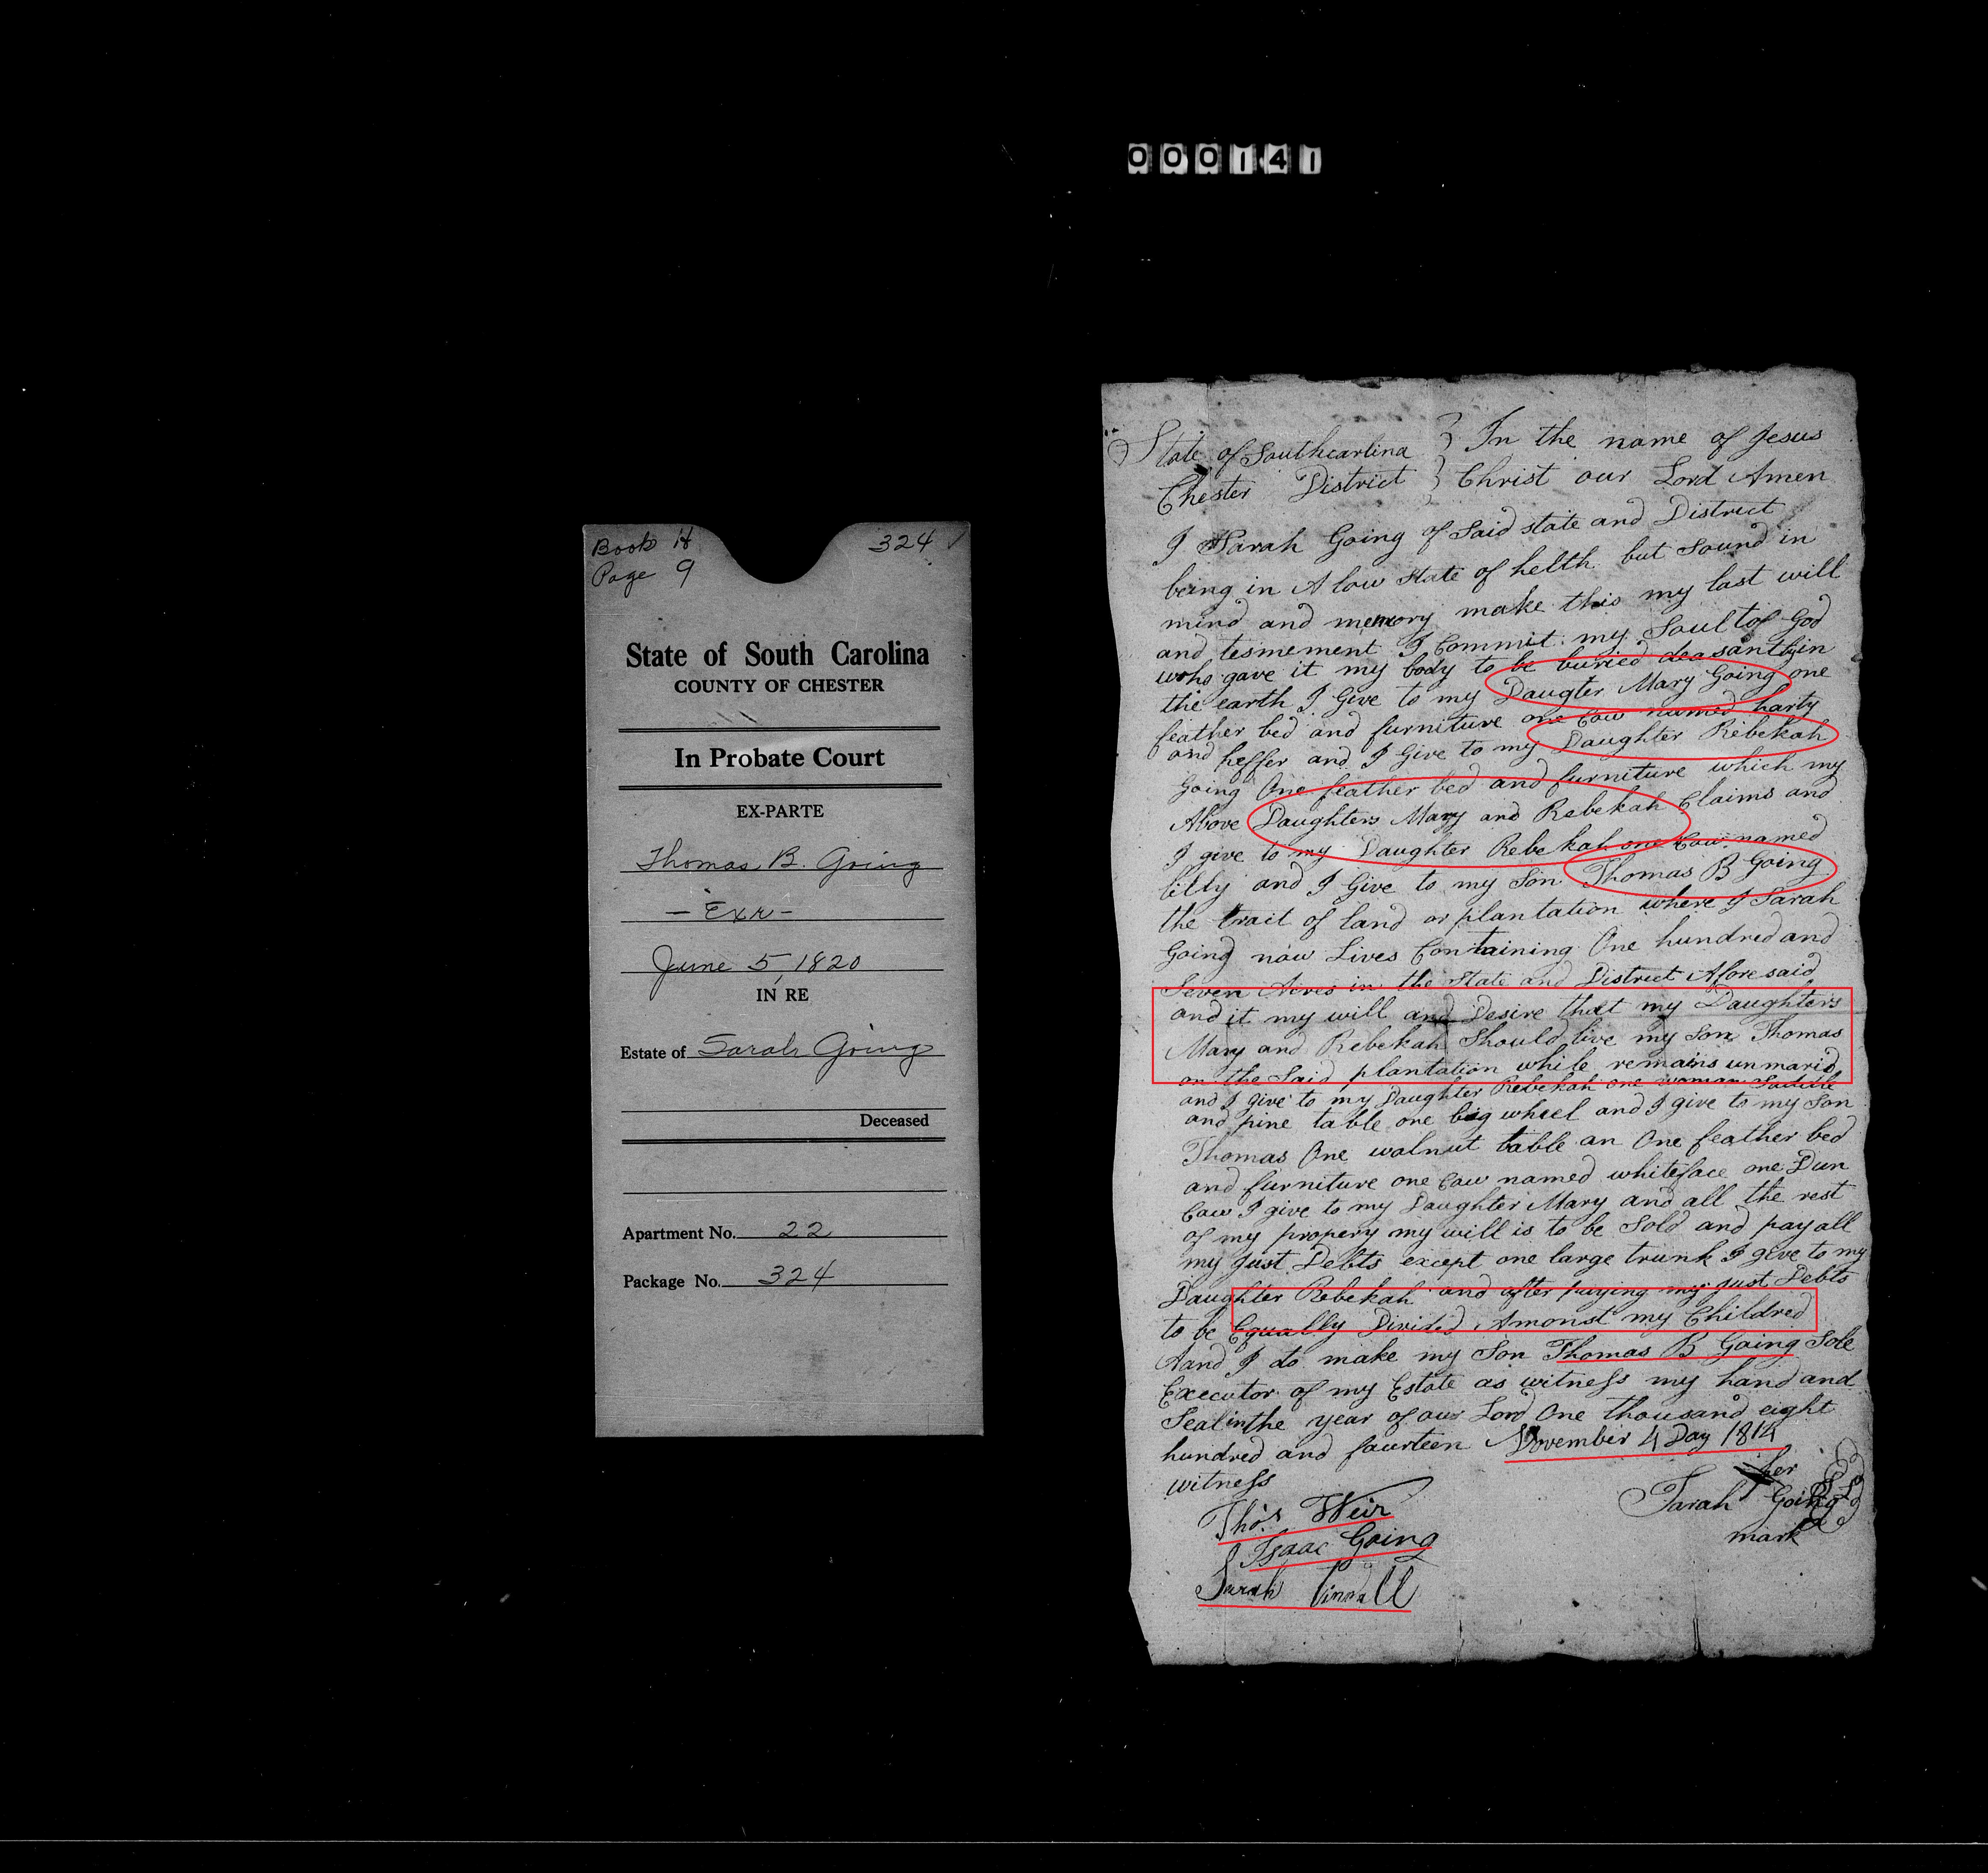 000141
Book H 324
Page 9
State of South Carolina
COUNTY OF CHESTER
In Probate Court
EX-PARTE
Thomas B. Going
- Exr -
June 5, 1820
IN RE
Estate of Sarah Going
Deceased
Apartment No. 22
Package No. 324
State of Southcarlina } In the name of Jesus
Chester District } Christ our Lord Amen
I Sarah Going of Said state and District
being in A low state of helth but Sound in
mind and memory make this my last will
and tesmement I Commit my Soul to God
who gave it my body to be buried deasantly in
the earth I Give to my Daugter Mary Going one
feather bed and furniture one Cow named harty
and heffer and I Give to my Daughter Rebekah
Going One feather bed and furniture which my
Above Daughters Mary and Rebekah Claims and
I give to my Daughter Rebekah one Cow named
lilly and I Give to my Son Thomas B Going
the trait of land or plantation where I Sarah
Going now Lives Containing One hundred and
Seven Acres in the State and District Aforesaid
and it my will and Desire that my Daughters
Mary and Rebekah Should live my Son Thomas
on the Said plantation while remains unmarid
and I give to my Daughter Rebekah one woman Saddle
and pine table one big wheel and I give to my Son
Thomas One walnut table an One feather bed
and furniture one Cow named whiteface one Dun
Cow I give to my Daughter Mary and all the rest
of my propery my will is to be Sold and pay all
my just Debts except one large trunk I give to my
Daughter Rebekah and after paying my just Debts
to be Equally Divided Amonst my Childred
Aand I do make my Son Thomas B Going Sole
Executor of my Estate as witness my hand and
Seal in the year of our Lord One thousand eight
hundred and faurteen November 4 Day 1814
witness
her
Thos Weir Sarah Going LS
Isaac Going mark
Sarah